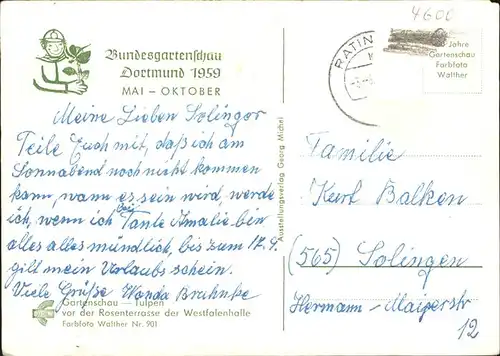 4600
Bundesgartenschau
Dortmund 1959
MAI – OKTOBER
RATIN
Jahre
Gartenschau
Farbfoto
Walther
Meine Lieben Solinger
Teile Euch mit, daß ich am
Sonnabend noch nicht kommen
kann, wann es sein wird, werde
ich, wenn ich bei Tante Amalie bin
alles alles mündlich, bis zum 17.9.
gilt mein Urlaubs schein.
Viele Grüße Wanda
Gartenschau — Tulpen
vor der Rosenterrasse der Westfalenhalle
Farbfoto Walther Nr. 901
Ausstellungsverlag Georg Michel
Familie
Kurt Balken
(565) Solingen
Hermann-
12